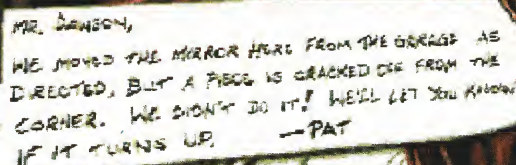 MR. DAWSON,
WE MOVED THE MIRROR HERE FROM THE GARAGE AS
DIRECTED, BUT A PIECE IS CRACKED OFF FROM THE
CORNER. WE DIDN'T DO IT! WE'LL LET YOU KNOW
IF IT TURNS UP. —PAT